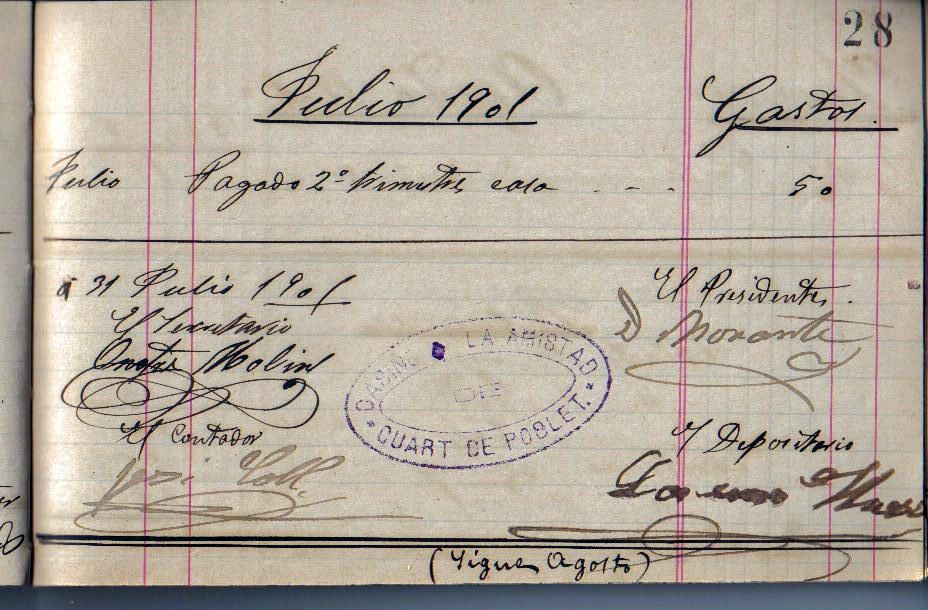 28
Julio 1901 Gastos.
Julio Pagado 2º trimestre casa - - - 50
a 31 Julio 1901
El Presidente.
El Secretario
D Morante
Molin
CASINO LA AMISTAD
DE
CUART DE POBLET.
El Contador
El Depositario
José Coll
(Sigue Agosto)